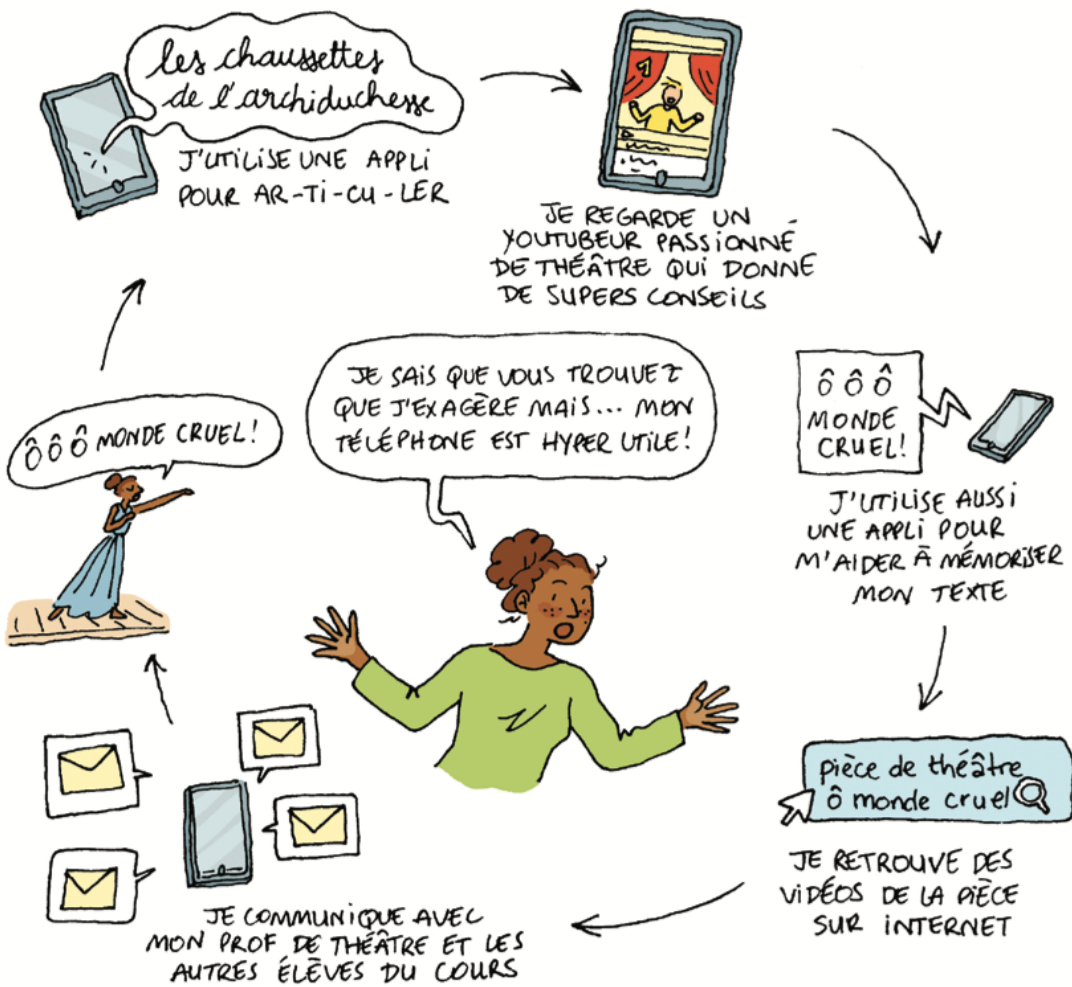 les chaussettes
de l'archiduchesse
J'UTILISE UNE APPLI
POUR AR-TI-CU-LER
JE REGARDE UN
YOUTUBEUR PASSIONNÉ
DE THÉÂTRE QUI DONNE
DE SUPERS CONSEILS
JE SAIS QUE VOUS TROUVEZ
QUE J'EXAGÈRE MAIS... MON
TÉLÉPHONE EST HYPER UTILE!
Ô Ô Ô MONDE CRUEL!
Ô Ô Ô
MONDE
CRUEL!
J'UTILISE AUSSI
UNE APPLI POUR
M'AIDER À MÉMORISER
MON TEXTE
pièce de théâtre
ô monde cruel
JE RETROUVE DES
VIDÉOS DE LA PIÈCE
SUR INTERNET
JE COMMUNIQUE AVEC
MON PROF DE THÉÂTRE ET LES
AUTRES ÉLÈVES DU COURS